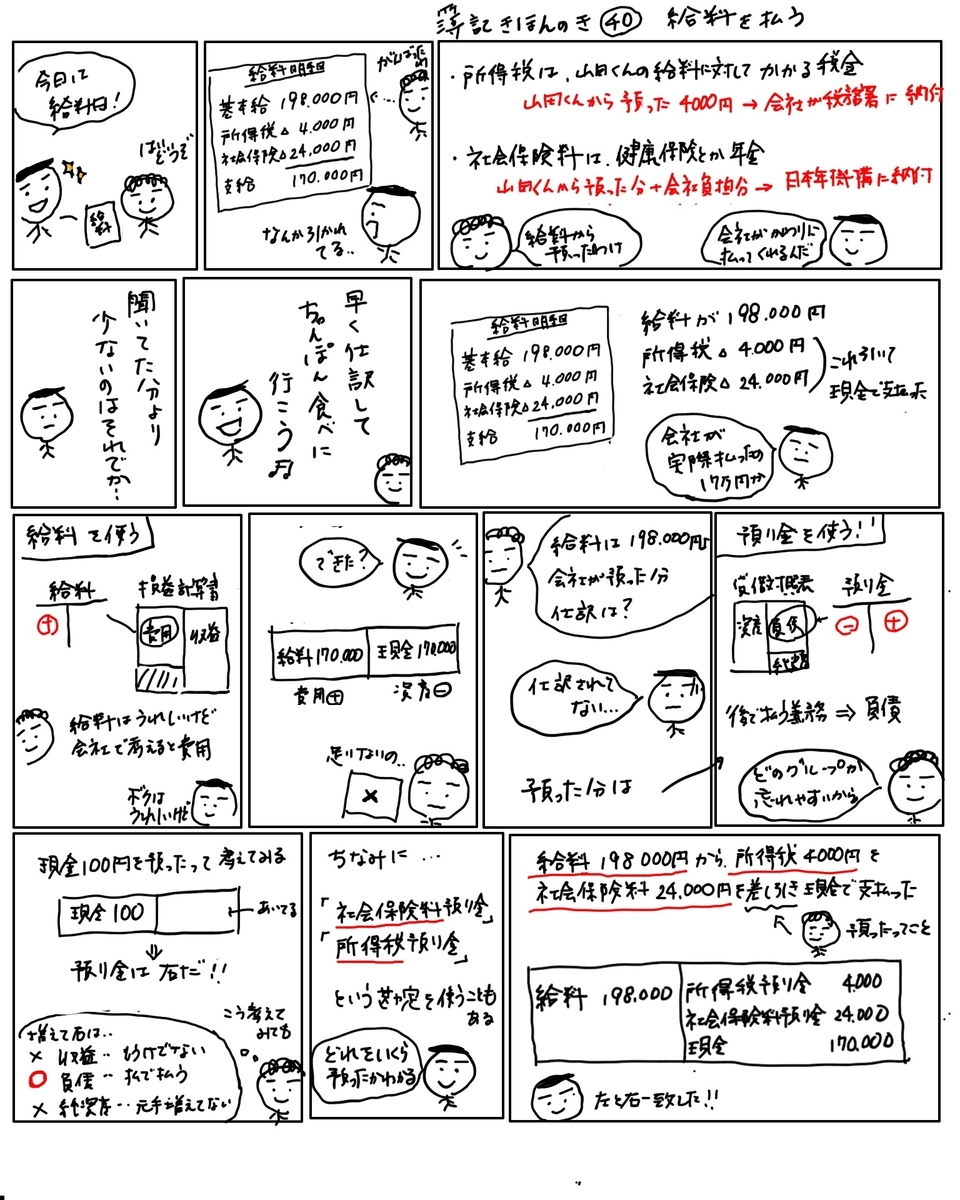 簿記きほんのき㊵ 給料を払う
今日は
給料日!
はい
どうぞ
給料
給料明細
基本給 198.000円
所得税△ 4.000円
社会保険△24,000円
支給 170.000円
がんばったね
なんか引かれ
てる..
・所得税は、山田くんの給料に対してかかる税金
山田くんから預った4000円→会社が税務署に納付
・社会保険料は、健康保険とか年金
山田くんから預った分+会社負担分→日本年金機構に納付
給料から
預ったわけ
会社がかわりに
払ってくれるんだ
聞いてた分より
少ないのはそれでか…
早く仕訳して
ちゃんぽん食べに
行こう♫
給料明細
基本給 198.000円
所得税△ 4.000円
社会保険△24,000円
支給 170.000円
給料が198.000円
所得税△ 4.000円
社会保険△ 24.000円
これ引いて
現金で支払った
会社が
実際払ったの
17万円か
給料を使う
給料
+
損益計算書
費用
収益
給料はうれしいけど
会社で考えると費用
ボクは
うれしいけど
できた?
給料170.000 現金170,000
費用⊕ 資産⊖
足りないの..
×
給料は198.000円
会社が預った分
仕訳は?
仕訳されて
ない…
預った分は
預り金を使う!!
貸借対照表
資産
負債
純資産
預り金
− +
後で払う義務⇒負債
どのグループか
忘れやすいから
現金100円を預ったって考えてみる
現金100
あいてる
預り金は右だ!!
こう考えて
みても
増えて右は..
× 収益‥もうけでない
○ 負債‥払って払う
× 純資産‥元手増えてない
ちなみに…
「社会保険料預り金」
「所得税預り金」
という勘定を使うことも
ある
どれをいくら
預ったかわかる
給料198000円から、所得税4000円を
社会保険料24.000円を差し引き現金で支払った
預ったってこと
給料 198.000
所得税預り金 4.000
社会保険料預り金 24.000
現金 170.000
左と右一致した!!